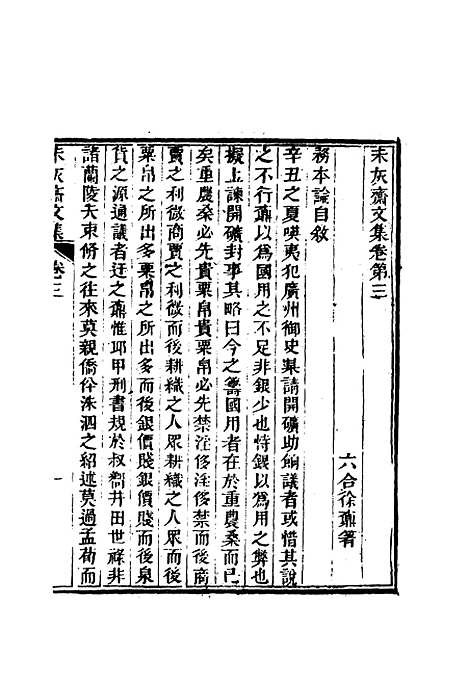 未灰齋文集卷第三
六合徐鼒著
務本論自敘
辛丑之夏𠸄夷犯廣州御史某請開礦助餉議者或惜其說
之不行鼒以爲國用之不足非銀少也恃錢以爲用之弊也
擬上諫開礦封事其略曰今之籌國用者在於重農桑而已
矣重農桑必先貴粟帛貴粟帛必先禁淫侈淫侈禁而後商
賈之利微商賈之利微而後耕織之人眾耕織之人眾而後
粟帛之所出多粟帛之所出多而後銀價賤銀價賤而後泉
貨之源通議者迂之鼒惟邱甲刑書規於叔嚮井田世祿非
諸蘭陵夫束脩之往來莫親僑肸洙泗之紹述莫過孟荀而
未灰齋文集
卷三
一